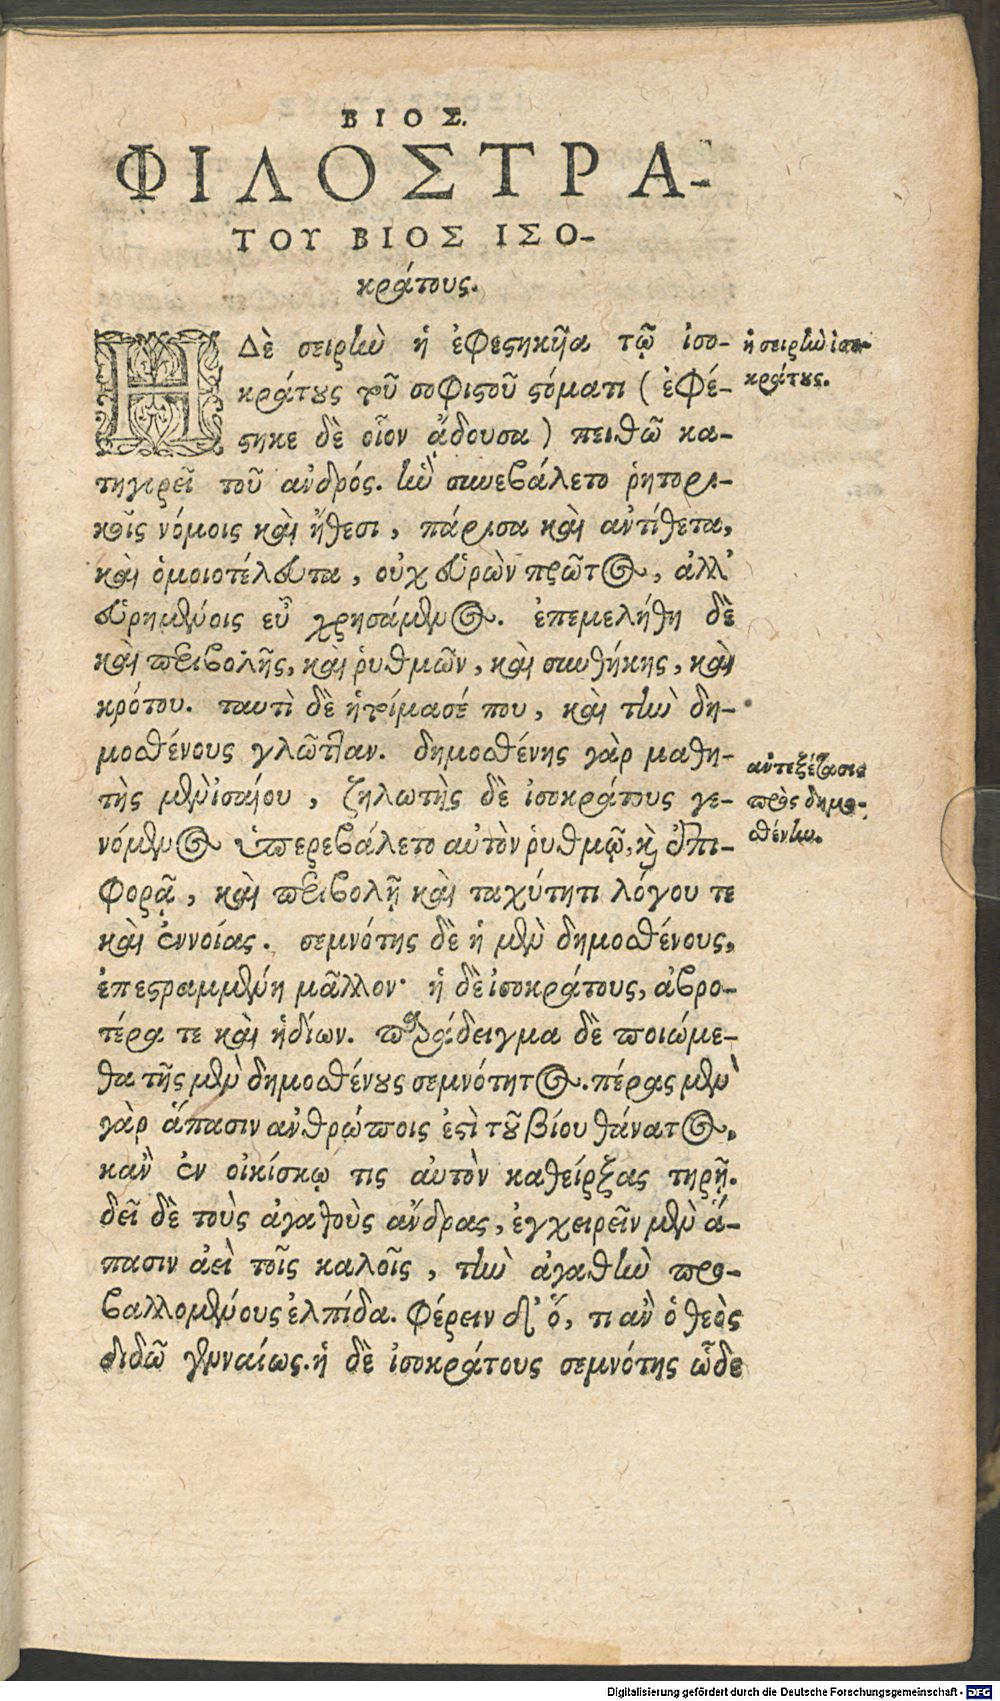 ΒΙΟΣ.
ΦΙΛΟΣΤΡΑ-
ΤΟΥ ΒΙΟΣ ΙΣΟ-
κράτους.
Η Δὲ σειρὴν ἡ ἐφεστηκῆα τῷ ἰσο-
κράτους τοῦ σοφιστοῦ στόματι (ἐφέ-
στηκε δὲ οἷον ᾄδουσα) πειθῶ κα-
τηγορεῖ τοῦ ἀνδρός. ἣν συνεβάλετο ῥητορι-
κοῖς νόμοις καὶ ἤθεσι, πάρισα καὶ ἀντίθετα,
καὶ ὁμοιοτέλευτα, οὐχ εὑρὼν πρῶτος, ἀλλ’
εὑρημένοις εὖ χρησάμενος. ἐπεμελήθη δὲ
καὶ περιβολῆς, καὶ ῥυθμῶν, καὶ συνθήκης, καὶ
κρότου. ταυτὶ δὲ ἡτοίμασέ που, καὶ τὴν δη-
μοσθένους γλῶτταν. δημοσθένης γὰρ μαθη-
τὴς μὲν ἰσαίου, ζηλωτὴς δὲ ἰσοκράτους γε-
νόμενος ὑπερεβάλετο αὐτὸν ῥυθμῷ, καὶ ἐπι-
φορᾷ, καὶ περιβολῇ καὶ ταχύτητι λόγου τε
καὶ ἐννοίας. σεμνότης δὲ ἡ μὲν δημοσθένους,
ἐπεστραμμένη μᾶλλον· ἡ δὲ ἰσοκράτους, ἁβρο-
τέρα τε καὶ ἡδίων. παράδειγμα δὲ ποιώμε-
θα τῆς μὲν δημοσθένους σεμνότητος. πέρας μὲν
γὰρ ἅπασιν ἀνθρώποις ἐστὶ τοῦ βίου θάνατος,
κἂν ἐν οἰκίσκῳ τις αὑτὸν καθείρξας τηρῇ.
δεῖ δὲ τοὺς ἀγαθοὺς ἄνδρας, ἐγχειρεῖν μὲν ἅ-
πασιν ἀεὶ τοῖς καλοῖς, τὴν ἀγαθὴν προ-
βαλλομένους ἐλπίδα. φέρειν δ’ ὅ, τι ἂν ὁ θεὸς
διδῶ γενναίως. ἡ δὲ ἰσοκράτους σεμνότης ὧδε
ἡ σειρὴν ἰσο-
κράτους.
ἀντεξέτασις
πρὸς δημο-
σθένην.
Digitalisierung gefördert durch die Deutsche Forschungsgemeinschaft - DFG